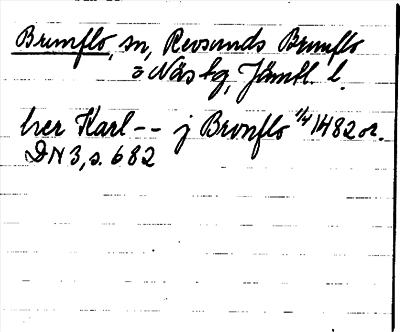 Brunflo, sn, Revsunds Brunflo
o Näs tg, Jämtl. l.
her Karl -- j Brvnflo 1/4 1482 or.
DN 3, s. 682